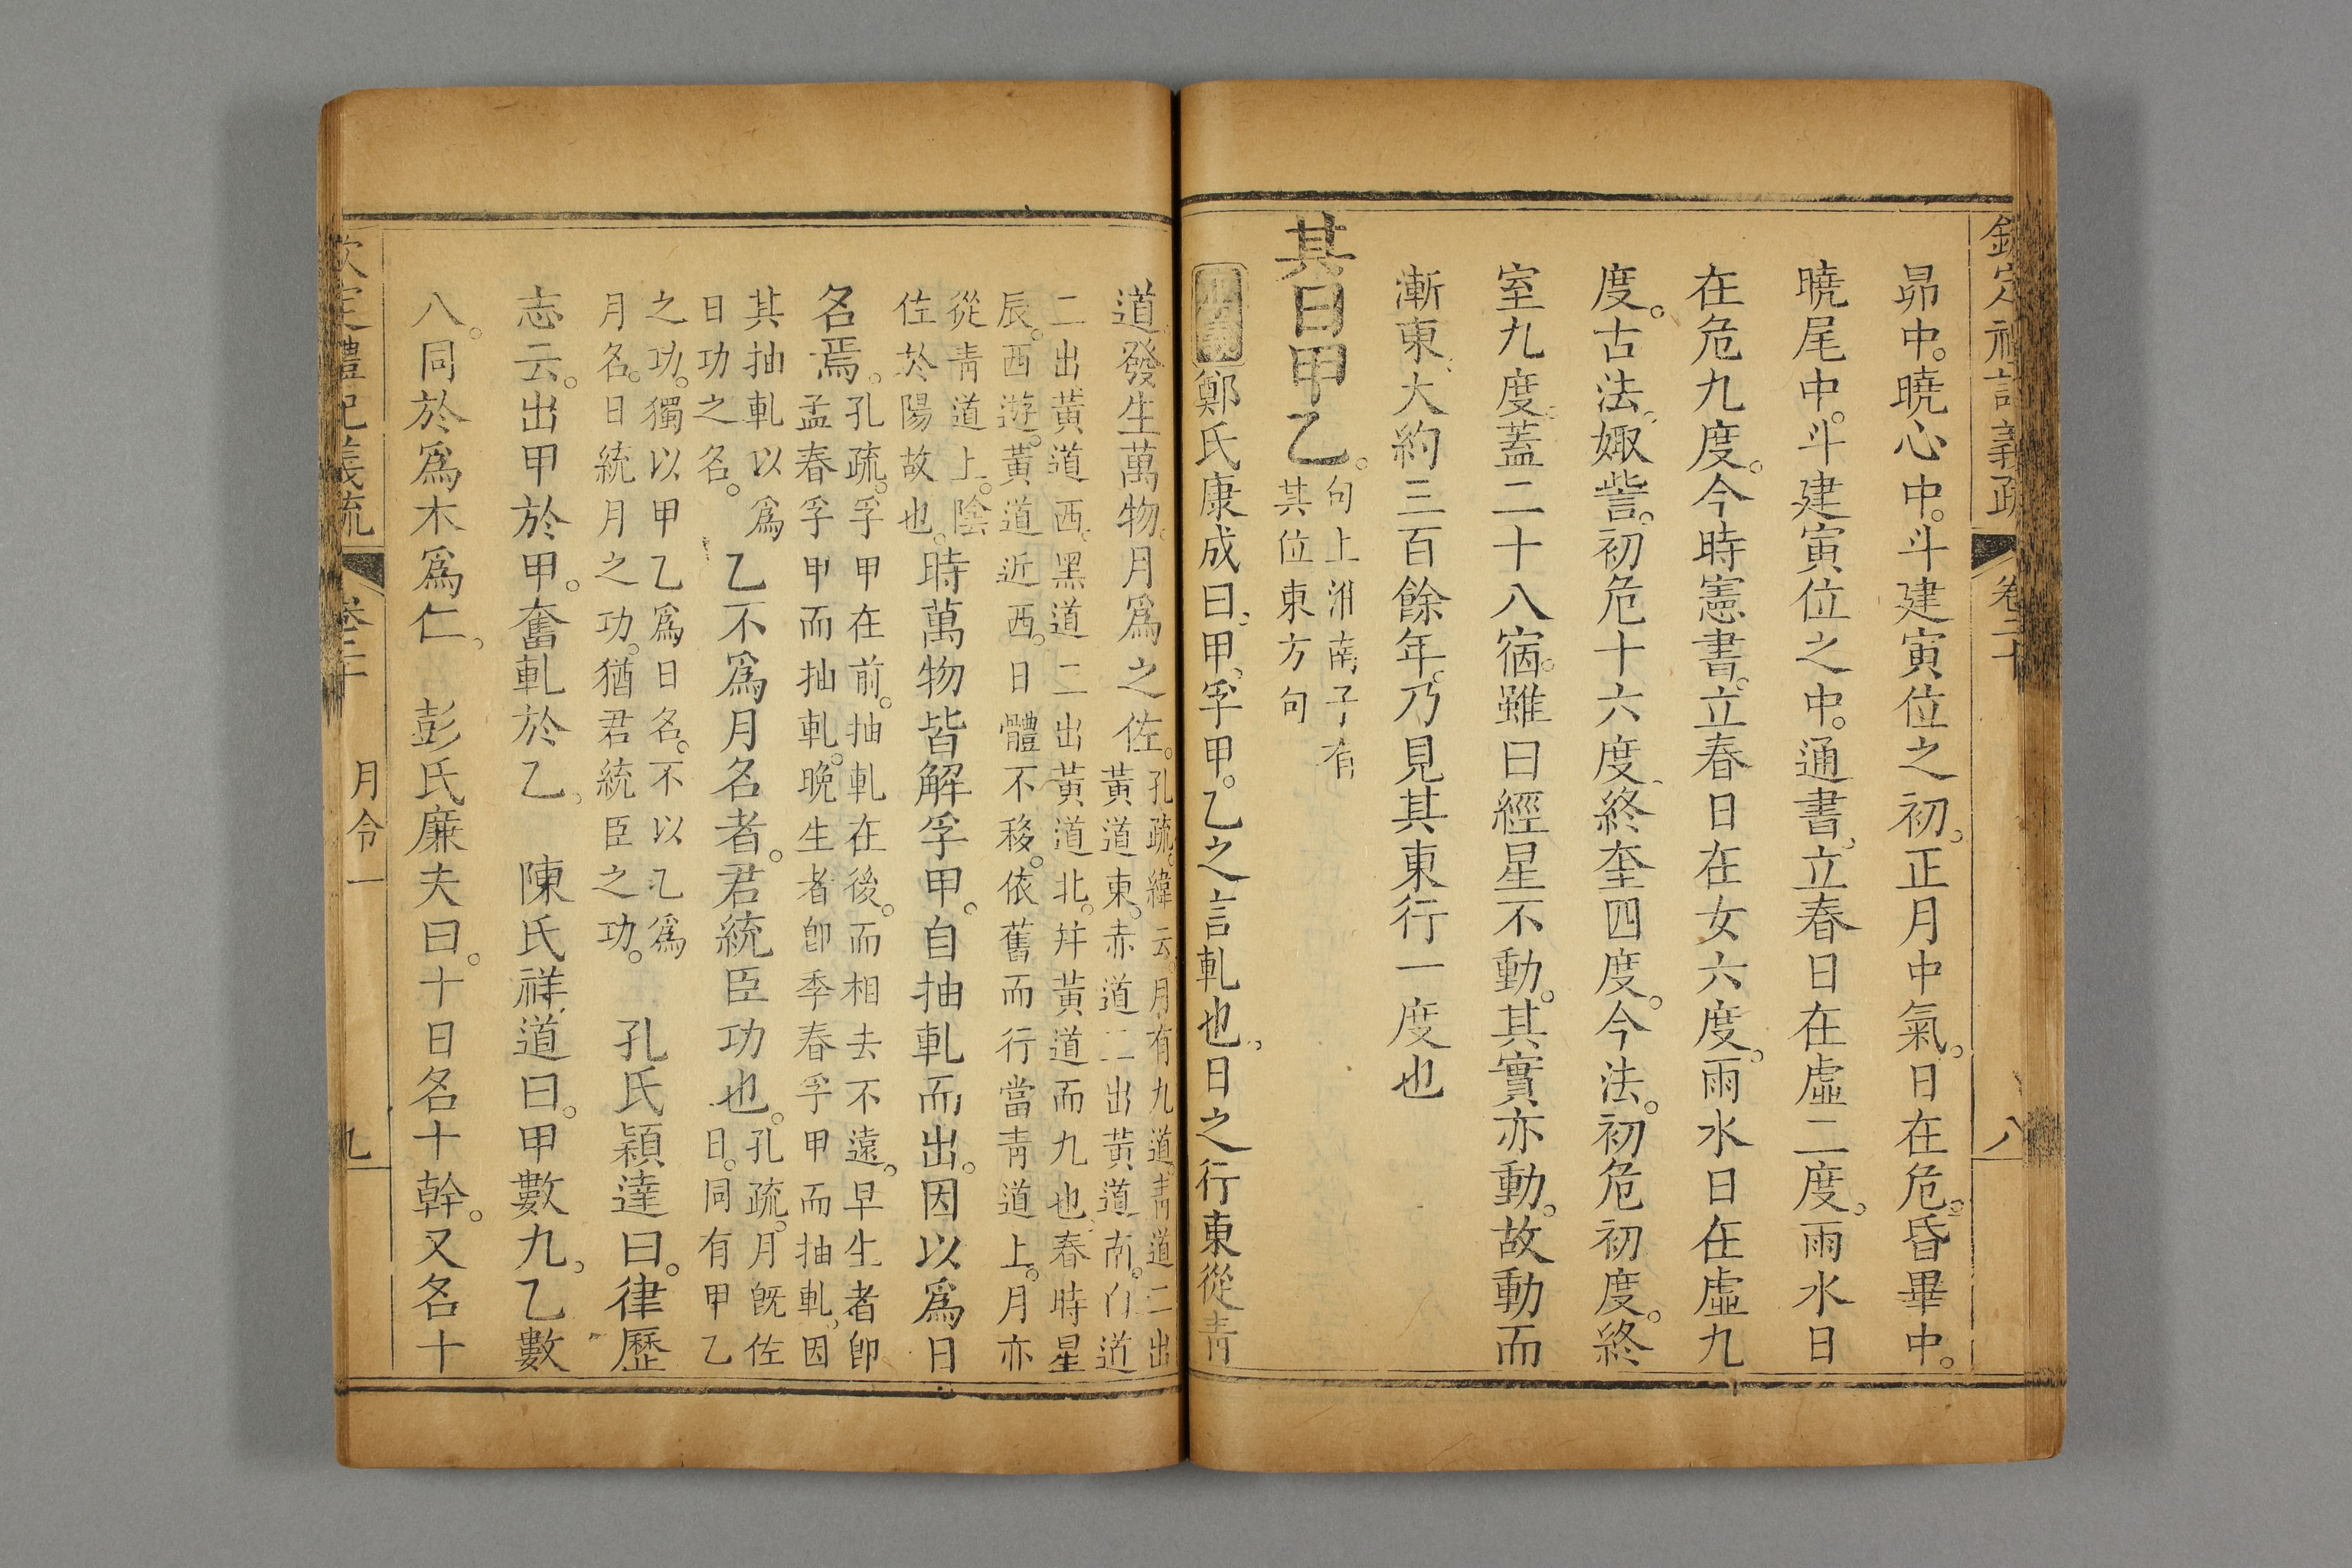 欽定禮記義疏 卷二十 八
昴中。曉心中。斗建寅位之初。正月中氣。日在危。昏畢中。
曉尾中。斗建寅位之中。通書。立春日在虛二度。雨水日
在危九度。今時憲書。立春日在女六度。雨水日在虛九
度。古法。娵訾。初危十六度。終奎四度。今法。初危初度。終
室九度。蓋二十八宿。雖曰經星不動。其實亦動。故動而
漸東。大約三百餘年。乃見其東行一度也
其日甲乙。句上淮南子有
其位東方句
正義 鄭氏康成曰。甲。孚甲。乙之言軋也。日之行東從靑
道。發生萬物。月爲之佐。孔疏。緯云。月有九道。靑道二出
黃道東。赤道二出黃道南。白道
二出黃道西。黑道二出黃道北。并黃道而九也。春時星
辰。西遊。黃道近西。日體不移。依舊而行當靑道上。月亦
從靑道上。陰
佐於陽故也。時萬物皆解孚甲。自抽軋而出。因以爲日
名焉。孔疏。孚甲在前。抽軋在後。而相去不遠。早生者卽
孟春孚甲而抽軋。晚生者卽季春孚甲而抽軋。因
其抽軋以爲
日功之名。乙不爲月名者。君統臣功也。孔疏。月旣佐
日。同有甲乙
之功。獨以甲乙爲日名。不以乙爲
月名。日統月之功。猶君統臣之功。孔氏穎達曰。律歷
志云。出甲於甲。奮軋於乙。陳氏祥道曰。甲數九。乙數
八。同於爲木爲仁。彭氏廉夫曰。十日名十幹。又名十
欽定禮記義疏 卷二十 月令一 九